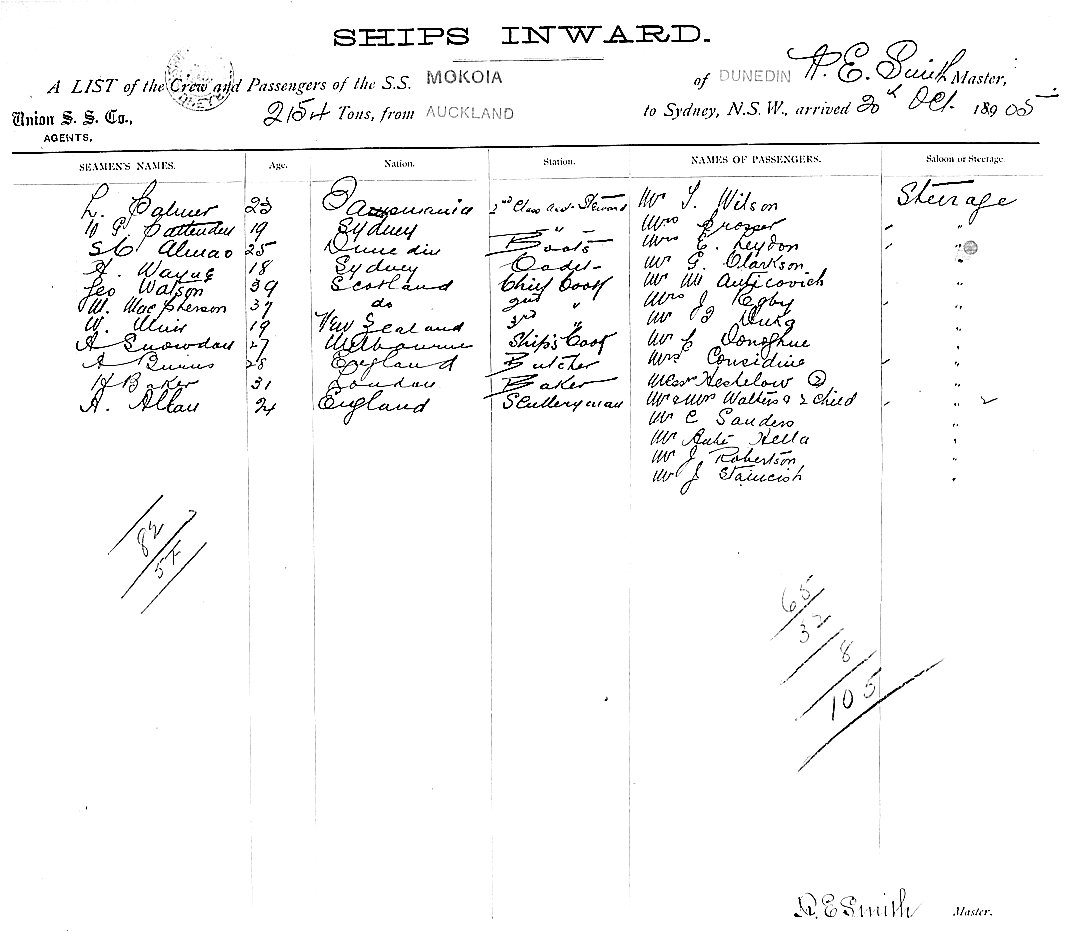 SHIPS INWARD.
A LIST of the Crew and Passengers of the S.S. MOKOIA of DUNEDIN A. E. Smith Master,
Union S. S. Co., AGENTS. 2154 Tons, from AUCKLAND to Sydney, N.S.W., arrived 20th Oct. 1905
SEAMEN'S NAMES. Age. Nation. Station. NAMES OF PASSENGERS. Saloon or Steerage.
L. Palmer 23 Tasmania 2nd Class Mr Wilson Steerage
19 Sydney " Mrs Prosser "
25 Dunedin Boots Mrs E. Leydon "
Wayne 18 Sydney Cadet Mr G. Clarkson "
Geo Watson 39 Scotland Chief Cook Mr M Anticovich "
W. MacPherson 37 do 2nd " Mrs J Egby "
W. Muir 19 New Zealand 3rd " Mr "
A Snowdon 27 Melbourne Ship's Cook Mr Donoghue "
A 28 England Butcher Mrs Considine "
H Baker 31 London Baker Heshelow 2 "
A. Allan 24 England Sculleryman Mr & Mrs Walters & 2 Child " 2
Mr C Sanders "
Mr "
Mr J. Robertson "
Mr J "
82
54
65
32
8
105
A. E Smith Master.